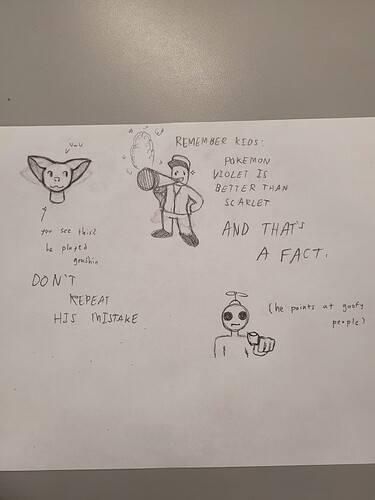 UwU
you see this?
he played
genshin
DON'T
REPEAT
HIS MISTAKE
REMEMBER KIDS:
POKEMON
VIOLET IS
BETTER THAN
SCARLET
AND THAT'S
A FACT.
(he points at goofy
people)